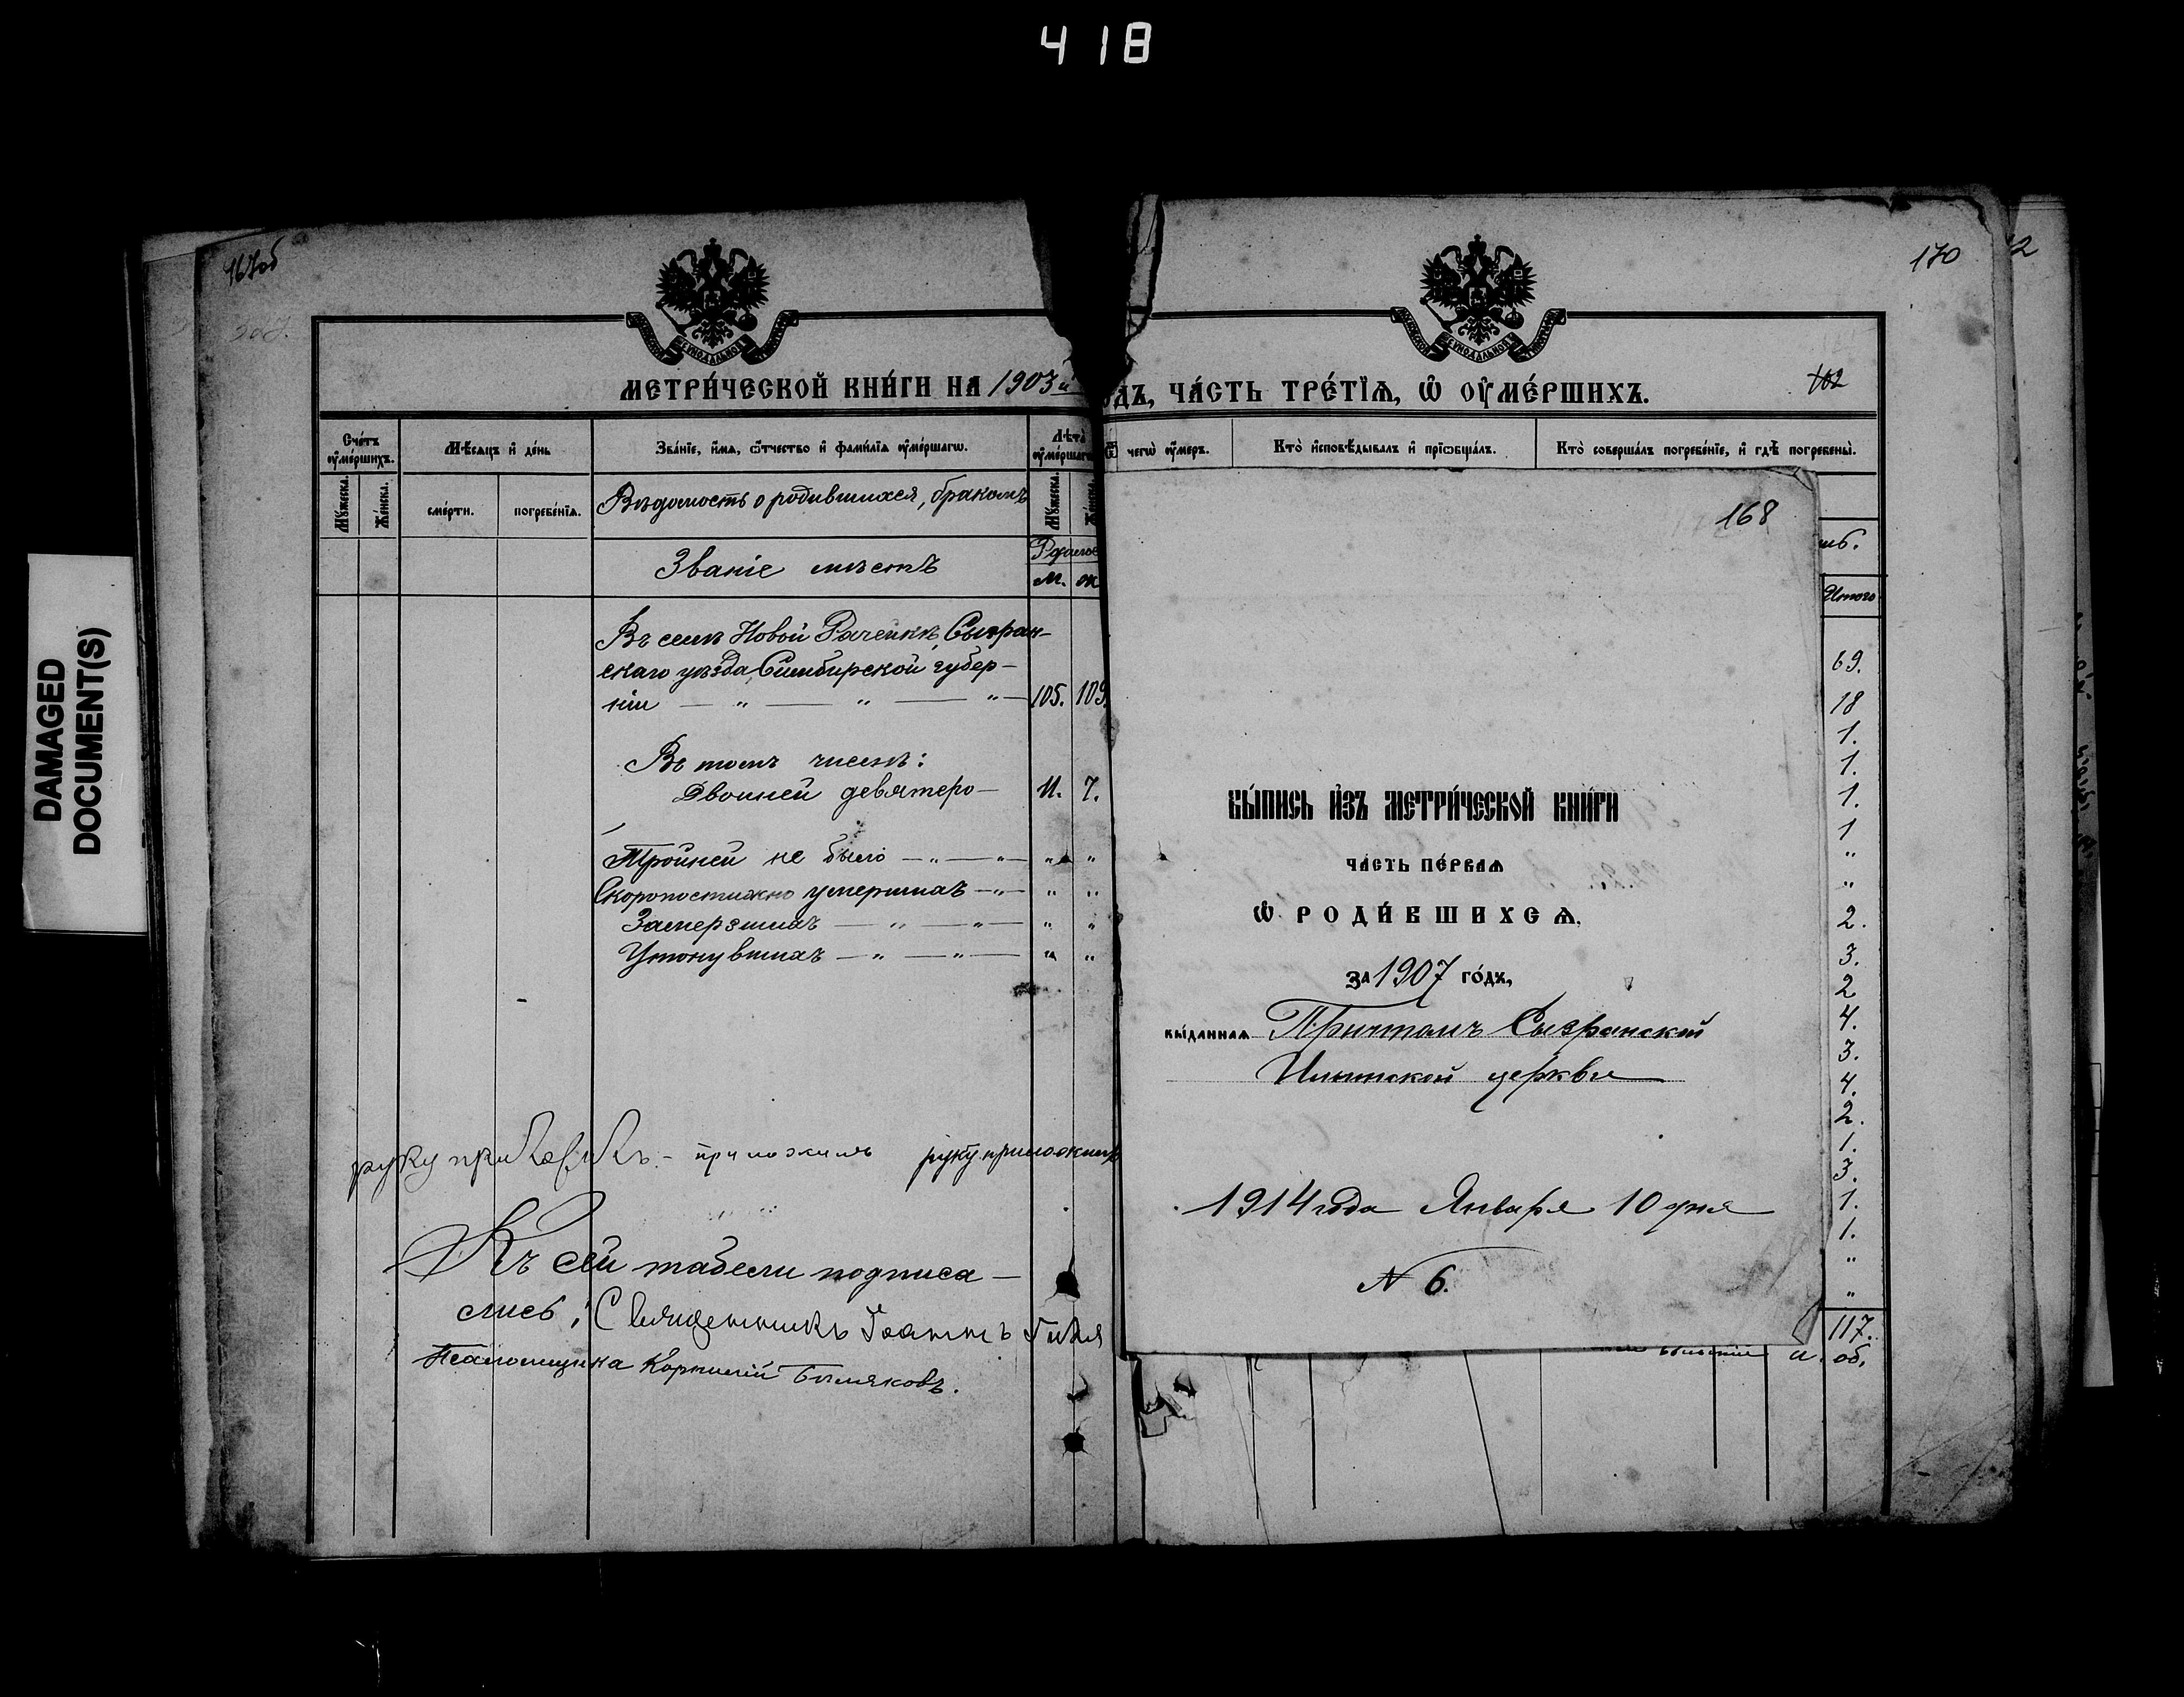 418
DAMAGED
DOCUMENT(S)
167об
170
12
МЕТРИ́ЧЕСКОЙ КНИ́ГИ НА 1903й
ОДЪ, ЧА́СТЬ ТРЕ́ТЇѦ, Ѡ҆ ОУ҆МЕ́РШИХЪ.
102
Сче́тъ оу҆ме́ршихъ.
Мѣ́сяцъ и҆ де́нь
Зва́нїе, и҆́мѧ, ѻ҆́тчество и҆ фами́лїѧ оу҆ме́ршагѡ.
Лѣ́та оу҆ме́ршагѡ
чегѡ̀ оу҆́меръ.
Кто̀ и҆сповѣ́дывалъ и҆ прїѡбща́лъ.
Кто̀ соверша́лъ погребе́нїе, и҆ гдѣ̀ погребены̀.
Му́жеска.
Же́нска.
сме́рти.
погребе́нїѧ.
Вѣдомость о родившихся, бракомъ
Му́жеска.
Званіе мѣстъ
м.
Въ селѣ Новой Рачейкѣ, Сызран-
скаго уѣзда, Симбирской губер-
ніи — " — " — " — 105. 109.
Въ томъ числѣ:
Двойней девятеро — 11. 7.
Тройней не было — " — " — " "
Скоропостижно умершихъ — " — " "
Замерзшихъ — " — " — " "
Утонувшихъ — " — " — " "
руку приложилъ. — приложилъ руку приложилъ
Къ сей табели подписа-
лись: Священникъ Іоаннъ
Псаломщика Корнилій
168
ВЫ́ПИСЬ И҆ЗЪ МЕТРИ́ЧЕСКОЙ КНИ́ГИ
ЧА́СТЬ ПЕ́РВАѦ
Ѡ҆ РОДИ́ВШИХСѦ,
ЗА 1907 ГО́ДЪ,
ВЫ́ДАННАѦ Причтомъ Сызранской
Ильинской церкви
1914 года Января 10 дня
N 6.
Итого
69.
18
1.
1.
1.
1
"
"
2.
3.
2
4.
3.
4.
2.
1.
3.
1.
1.
"
"
117.
об.